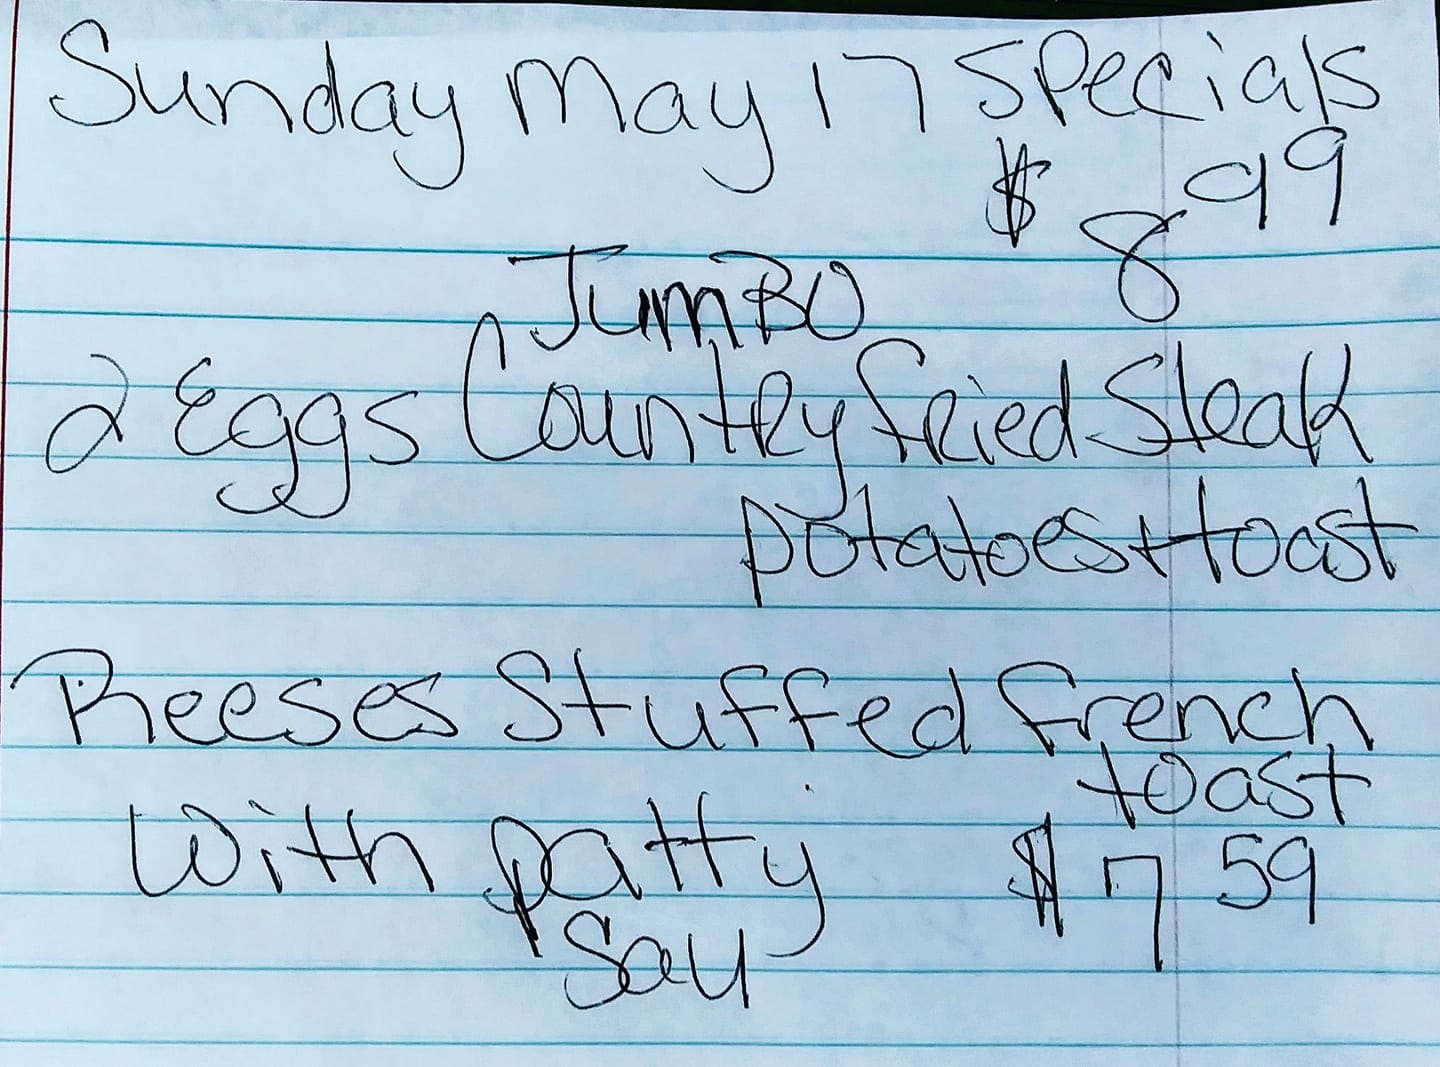 Sunday May 17 Specials
$ 8 99
JumBO
2 Eggs Country fried Steak
potatoes + toast
Reeses Stuffed french
toast
With patty $ 7 59
Sau